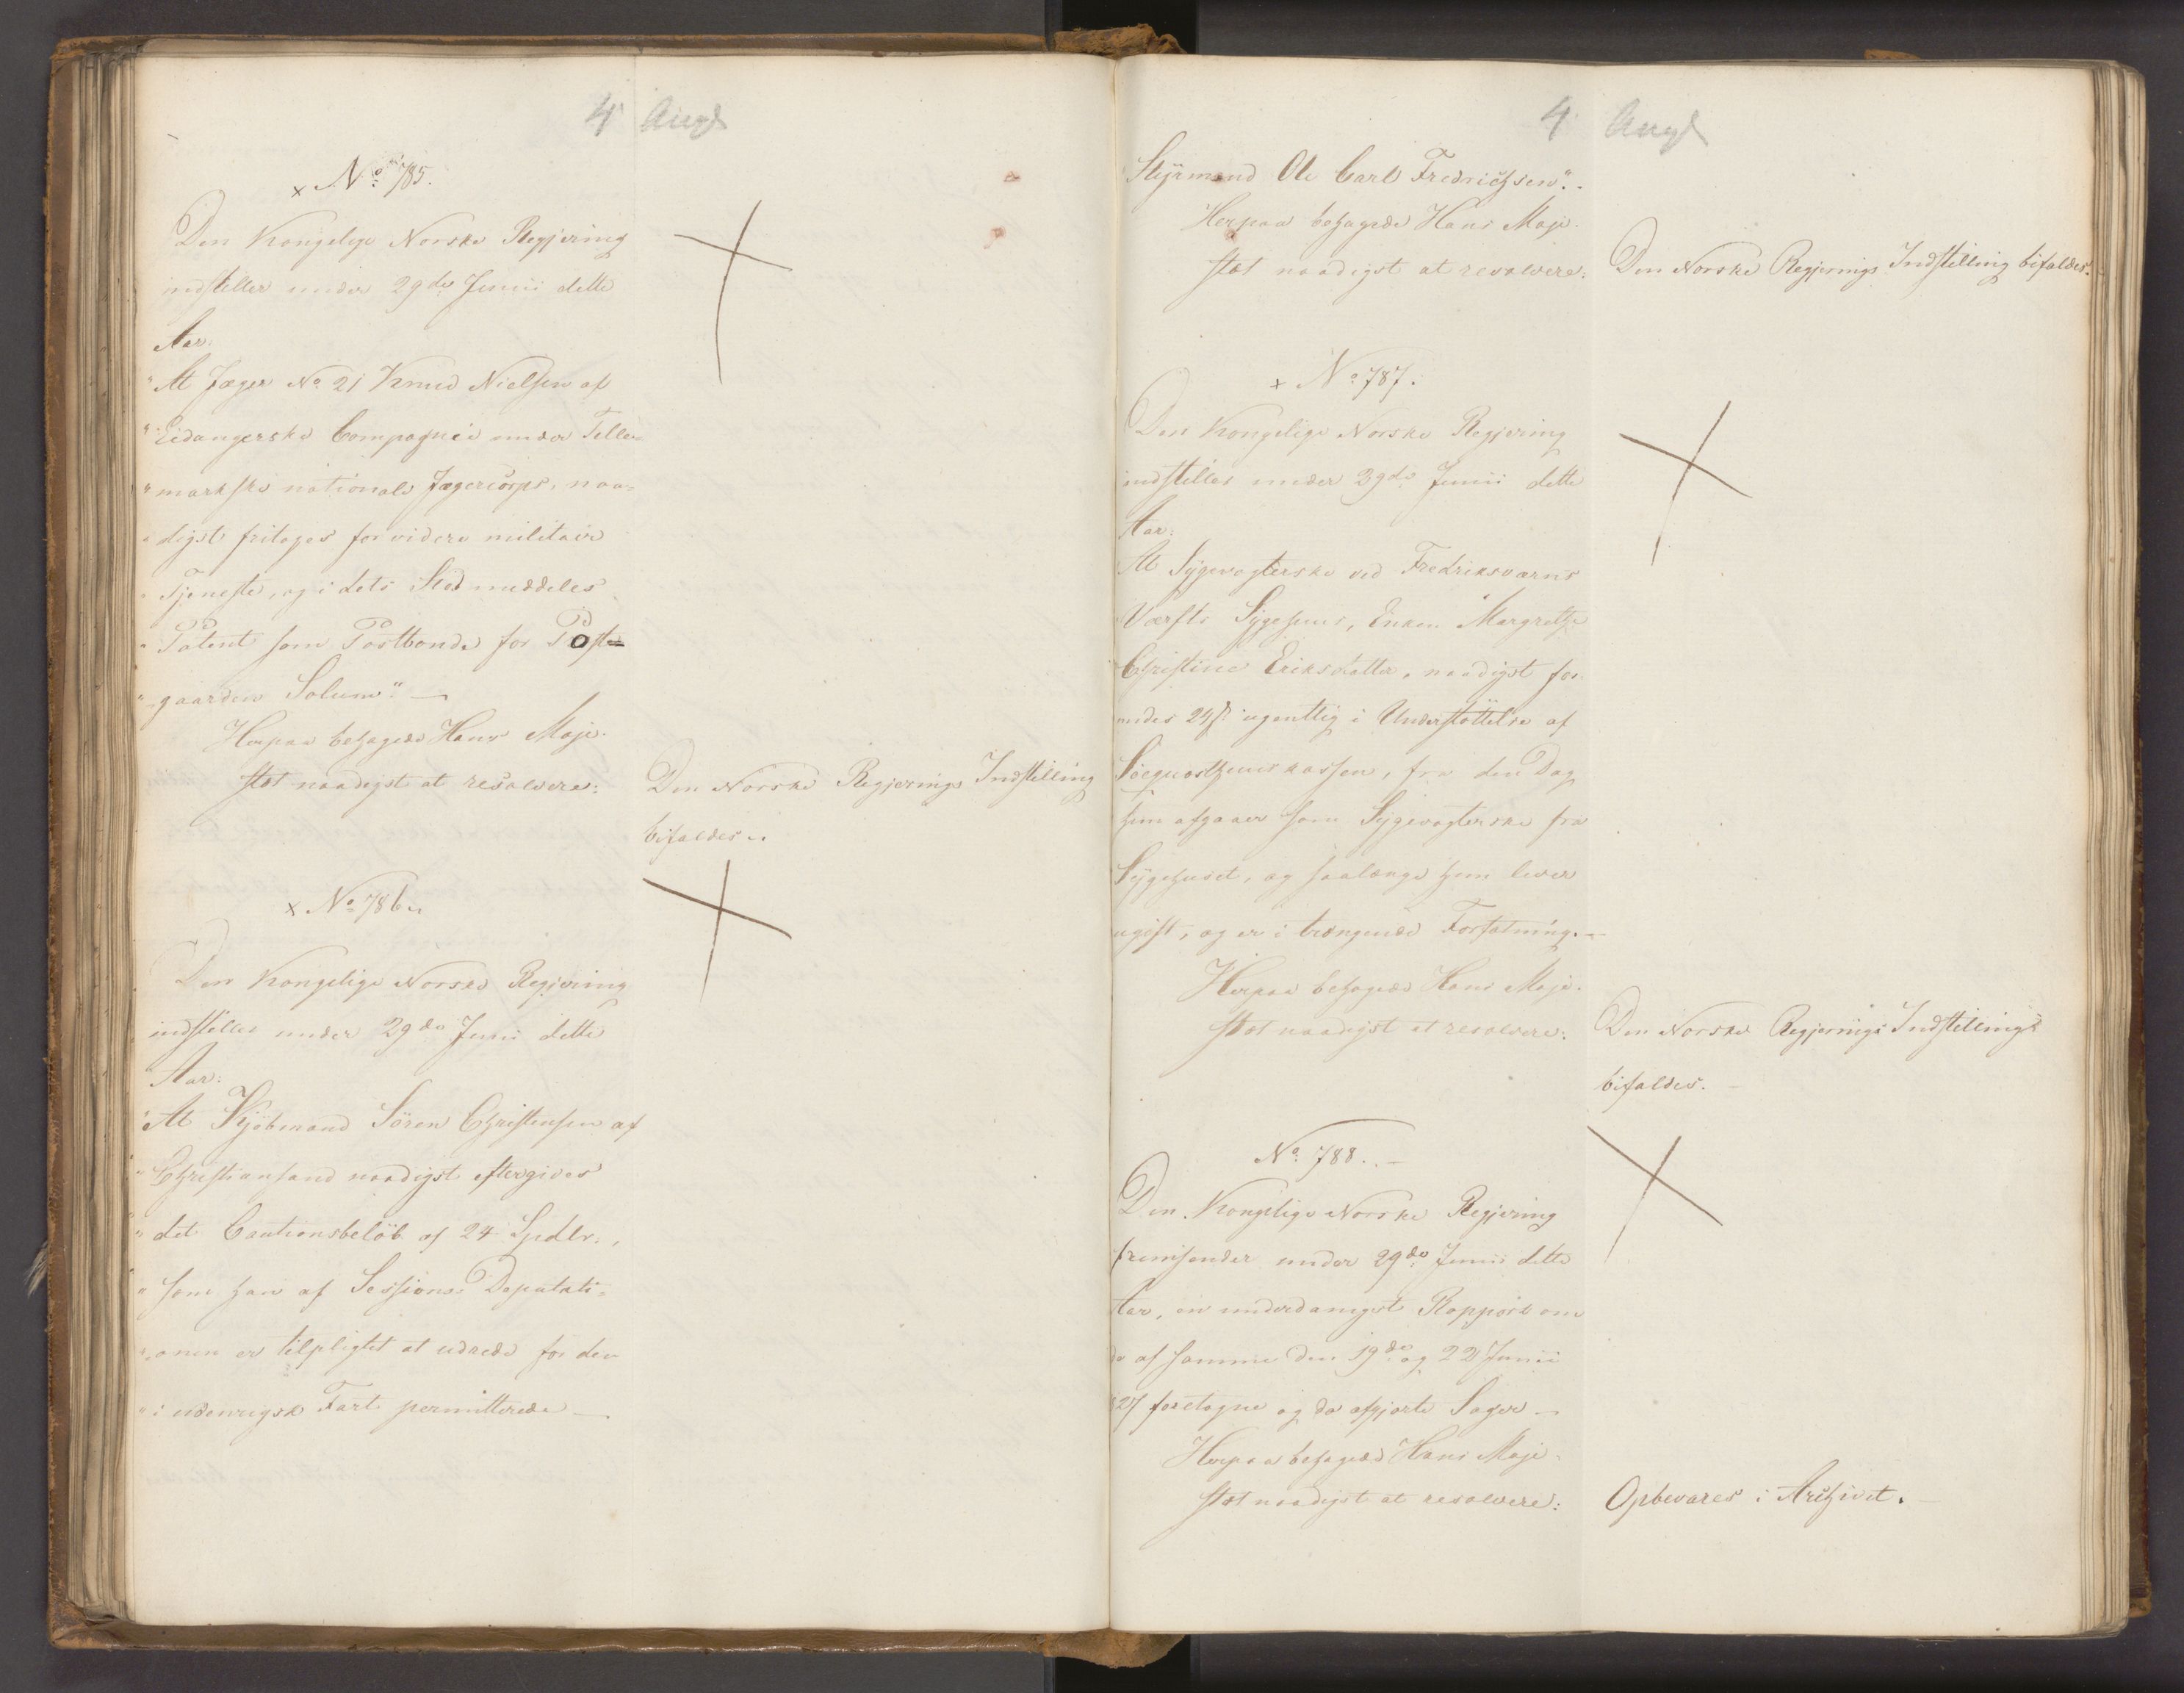 4 Augt
× No 785.
Den Kongelige Norske Regjering
indstiller under 29de Junii dette
Aar:
"At Jæger No 21 Knud Nielsen af
"Eidangerske Compagnie under Telle-
"markske nationale Jægercorps, naa-
"digst fritages for videre militair
"Tjeneste, og i dets Sted meddeles
"Patent som Postbonde for Post-
"gaarden Solum". —
Herpaa behagede Hans Maje-
stæt naadigst at resolvere:
Den Norske Regjerings Indstilling
bifaldes.
× No 786.
Den Kongelige Norske Regjering
indstiller under 29de Junii dette
Aar:
"At Kjöbmand Sören Christensen af
"Christiansand naadigst eftergives
"det Cautionsbelöb af 24 Spdlr.,
"som han af Sessions Deputati-
"onen er tilpligtet at udrede for den
"i udenrigsk Fart permitterede —
4 Augt
Styrmand Ole Carl Fredrichsen".
Herpaa behagede Hans Maje-
stæt naadigst at resolvere:
Den Norske Regjerings Indstilling bifaldes.
× No 787.
Den Kongelige Norske Regjering
indstiller under 29de Junii dette
Aar:
At Sygevogterske ved Fredriksværns
Værfts Sygehuus, Enken Margrethe
Christine Eriksdatter, naadigst for-
undes 24 s. ugentlig i Understöttelse af
Söeqvæsthuuskassen, fra den Dag
hun afgaaer som Sygevogterske fra
Sygehuset, og saalænge hun lever
ugift, og er i trængende Forfatning. —
Herpaa behagede Hans Maje-
stæt naadigst at resolvere:
Den Norske Regjerings Indstilling
bifaldes. —
No 788. —
Den Kongelige Norske Regjering
fremsender under 29de Junii dette
Aar, en underdanigst Rapport om
de af samme den 19de og 22 Junii
27 foretagne og da afgjorte Sager —
Herpaa behagede Hans Maje-
stæt naadigst at resolvere:
Opbevares i Archivet. —